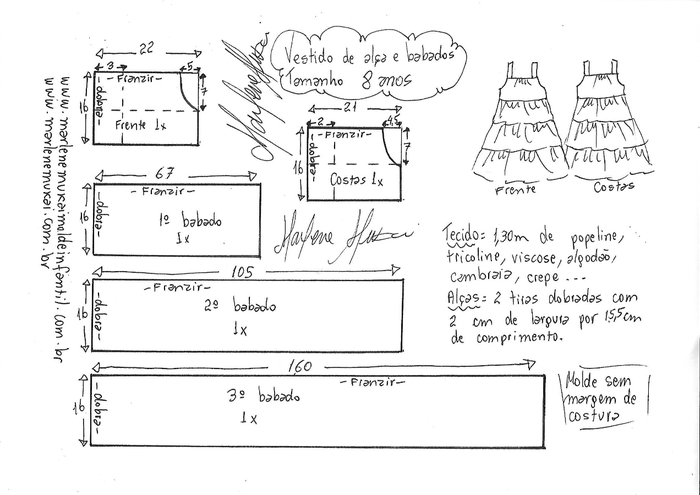 Vestido de alça e babados
Tamanho 8 anos
22
3
5
- Franzir -
7
16
- dobra -
Frente 1x
21
2
4,5
- Franzir -
7
16
- dobra -
Costas 1x
67
- Franzir -
16
- dobra -
1º babado
1x
105
- Franzir -
16
- dobra -
2º babado
1x
160
- Franzir -
16
- dobra -
3º babado
1x
Frente
Costas
Tecido= 1,30m de popeline,
tricoline, viscose, algodão,
cambraia, crepe ...
Alças= 2 tiras dobradas com
2 cm de largura por 15,5cm
de comprimento.
Molde sem
margem de
costura
www.marlenemukaimoldeinfantil.com.br
www.marlenemukai.com.br
Marlene Mukai
Marlene Mukai